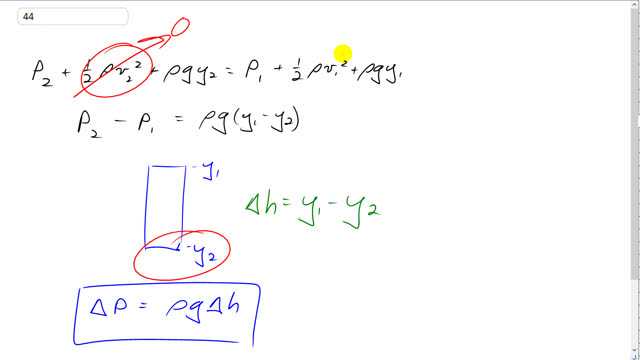 44
0
P₂ + ½ ρv₂² + ρgy₂ = P₁ + ½ ρv₁² + ρgy₁
P₂ - P₁ = ρg(y₁ - y₂)
- y₁
Δh = y₁ - y₂
- y₂
ΔP = ρgΔh